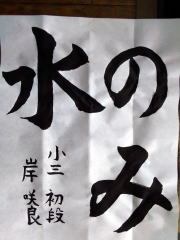 のみ
水
小三 初段
岸 咲良